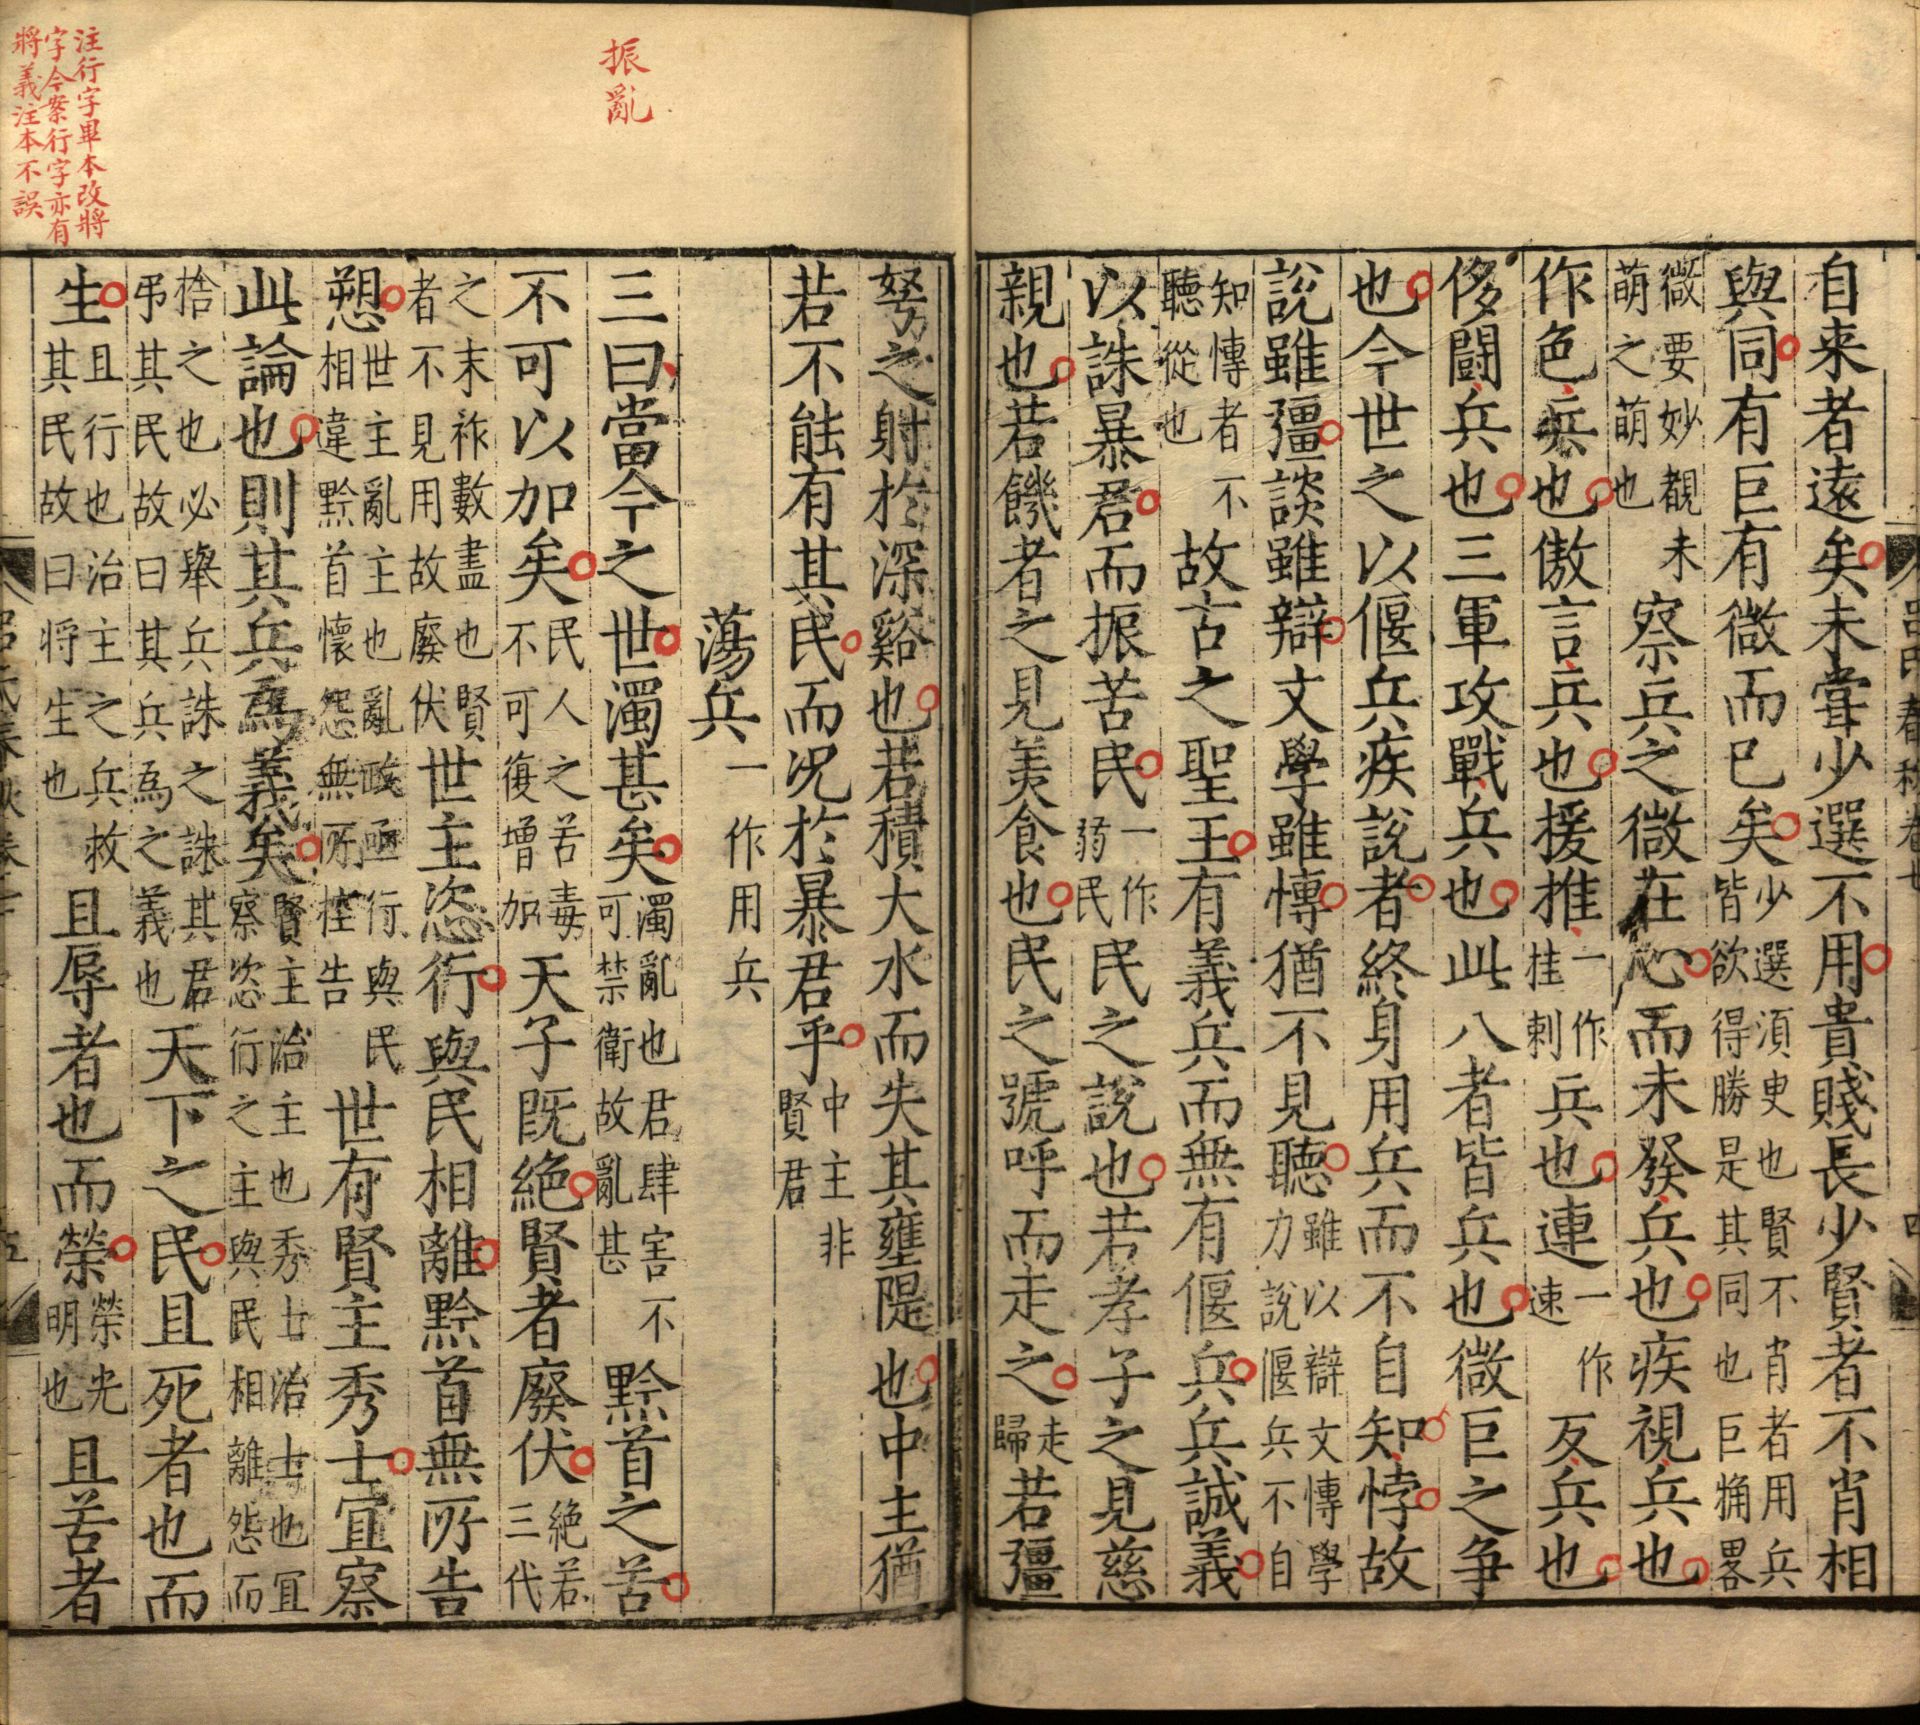 自来者遠矣未甞少選不用貴賤長少賢者不肖相
與同有巨有微而已矣少選須臾也賢不肖者用兵皆欲得勝是其同也巨觕畧
微要妙覩未萌之萌也察兵之微在心而未發兵也疾視兵也
作色兵也傲言兵也援推一作挂刺兵也連一作速反兵也
侈鬭兵也三軍攻戰兵也此八者皆兵也微巨之争
也今世之以偃兵疾說者終身用兵而不自知悖故
說雖彊談雖辯文學雖愽猶不見聽雖以辯文愽學力說偃兵不自
知愽者不聽從也故古之聖王有義兵而無有偃兵兵誠義
以誅暴君而振苦民一作弱民民之說也若孝子之見慈
親也若饑者之見美食也民之號呼而走之走歸若彊
弩之射於深谿也若積大水而失其壅隄也中主猶
若不能有其民而况於暴君乎中主非賢君
振亂
蕩兵一作用兵
三曰當今之世濁甚矣濁亂也君肆害不可禁衛故亂甚黔首之苦
不可以加矣民人之苦毒不可復增加天子既絶賢者廢伏絶若三代
之末祚數盡也賢者不見用故廢伏世主恣行與民相離黔首無所告
愬世主亂主也亂政亟行與民相違黔首懷怨無所控告世有賢主秀士宜察
此論也則其兵爲義矣賢主治主也秀士治士也宜察恣行之主與民相離怨而
捨之也必舉兵誅之誅其君弔其民故曰其兵為之義也天下之民且死者也而
生且行也治主之兵救其民故曰将生也且辱者也而榮榮光明也且苦者
注行字畢本改將
字今案行字亦有
將義注本不誤